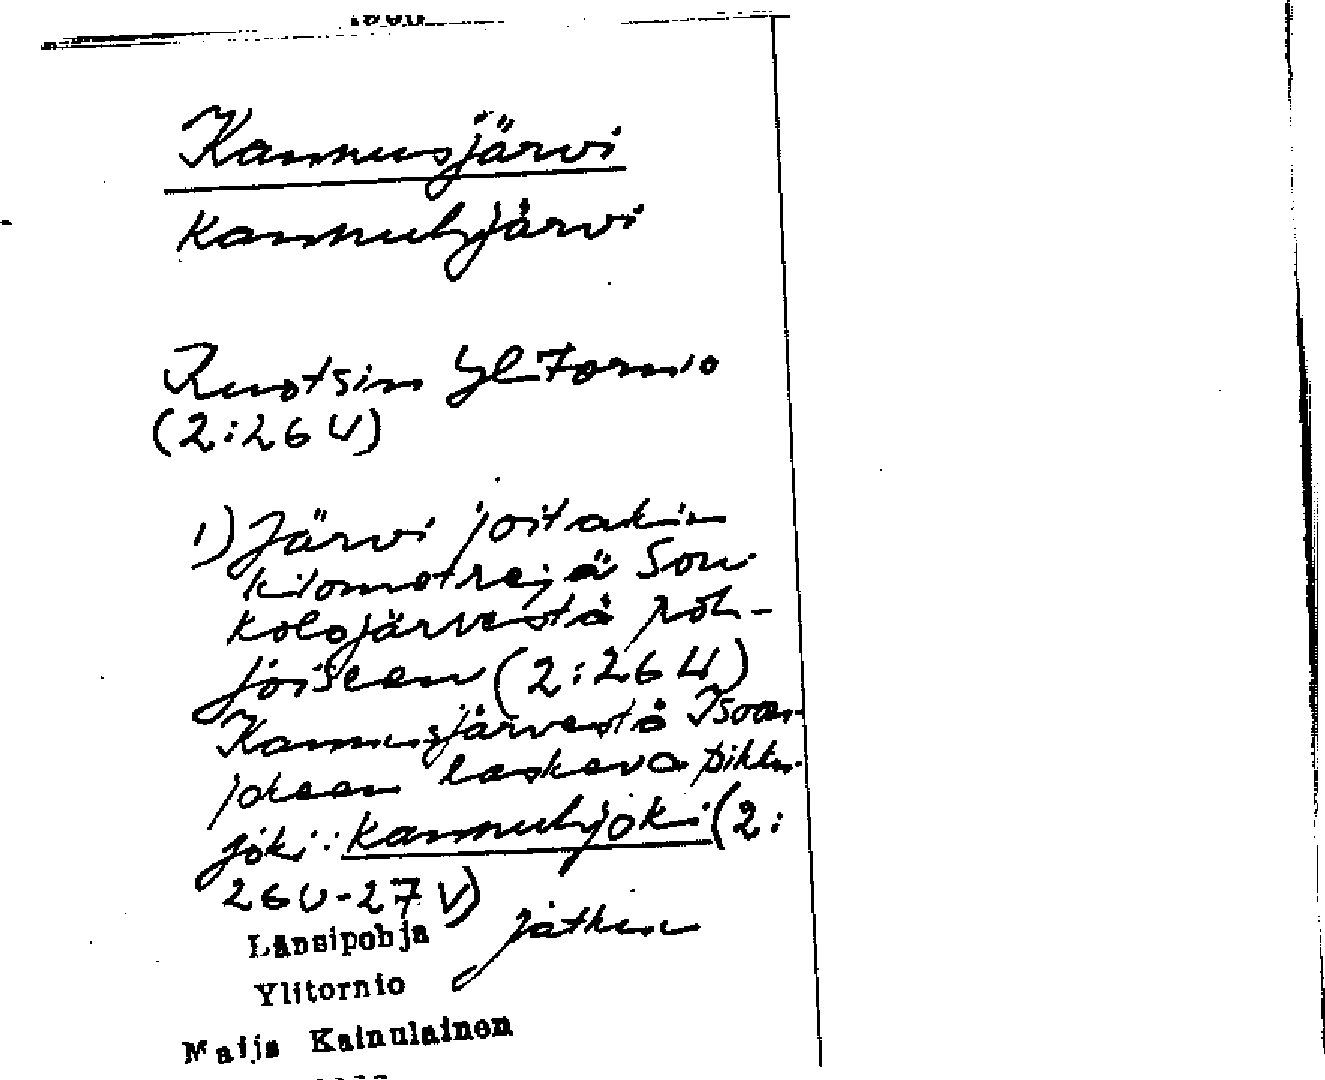 Kannusjärvi
kannuhjärvi
Ruotsin Ylitornio
(2:26 U)
1) Järvi joitakin
kilometrejä Sou-
kolojärvestä poh-
joiseen (2:26 U)
Kannusjärvestä Isoon-
jokeen laskeva pikku-
joki: kannuhjoki (2:
26U-27V)
jatkuu
Länsipohja
Ylitornio
Maija Kainulainen